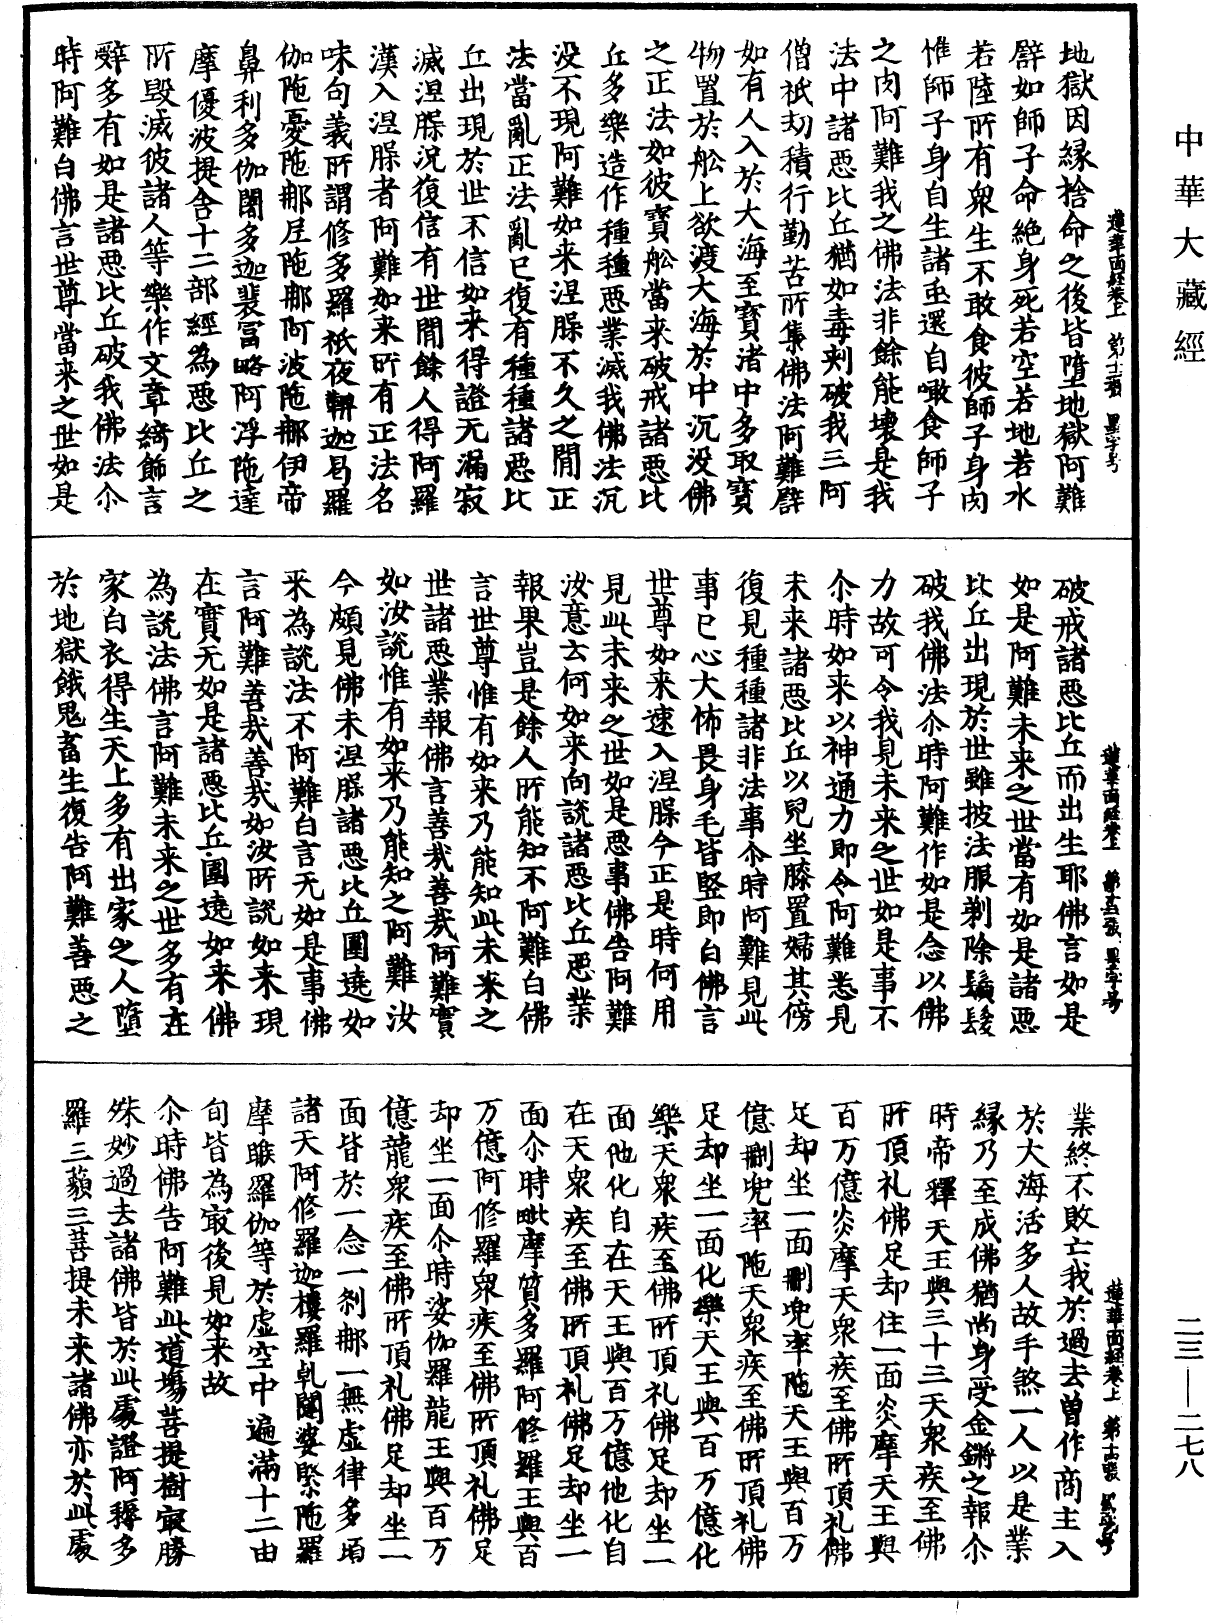 中華大藏經
蓮華面經卷上　第十二張　墨字号
地獄因緣捨命之後皆墮地獄阿難
譬如師子命絕身死若空若地若水
若陸所有衆生不敢食彼師子身肉
惟師子身自生諸虫還自噉食師子
之肉阿難我之佛法非餘能壞是我
法中諸惡比丘猶如毒刺破我三阿
僧祇劫積行勤苦所集佛法阿難譬
如有人入於大海至寶渚中多取寶
物置於舩上欲渡大海於中沉没佛
之正法如彼寶舩當来破戒諸惡比
丘多樂造作種種惡業滅我佛法沉
没不現阿難如来涅槃不久之閒正
法當亂正法亂已復有種種諸惡比
丘出現於世不信如来得證无漏寂
滅涅槃况復信有世閒餘人得阿羅
漢入涅槃者阿難如来所有正法名
味句義所謂修多羅祇夜鞞迦曷羅
伽陁憂陁那尼陁那阿波陁那伊帝
鼻利多伽闍多迦裴富略阿浮陁達
摩優波提舍十二部經為惡比丘之
所毀滅彼諸人等樂作文章綺飾言
辭多有如是諸惡比丘破我佛法尒
時阿難白佛言世尊當来之世如是
蓮華面經卷上　第十三張　墨字号
破戒諸惡比丘而出生耶佛言如是
如是阿難未来之世當有如是諸惡
比丘出現於世雖披法服剃除鬚髮
破我佛法尒時阿難作如是念以佛
力故可令我見未来之世如是事不
尒時如来以神通力即令阿難悉見
未来諸惡比丘以兒坐膝置婦其傍
復見種種諸非法事尒時阿難見此
事已心大怖畏身毛皆竪即白佛言
世尊如来速入涅槃今正是時何用
見此未来之世如是惡事佛告阿難
汝意云何如来向說諸惡比丘惡業
報果豈是餘人所能知不阿難白佛
言世尊惟有如来乃能知此未来之
世諸惡業報佛言善㢤善㢤阿難實
如汝說惟有如来乃能知之阿難汝
今頗見佛未涅槃諸惡比丘圍遶如
来為說法不阿難白言无如是事佛
言阿難善㢤善㢤如汝所說如来現
在實无如是諸惡比丘圍遶如来佛
為說法佛言阿難未来之世多有在
家白衣得生天上多有出家之人墮
於地獄餓鬼畜生復告阿難善惡之
蓮華面經卷上　第十四張　墨字号
業終不敗亡我於過去曾作商主入
於大海活多人故手煞一人以是業
緣乃至成佛猶尚身受金鏘之報尒
時帝釋天王與三十三天衆疾至佛
所頂礼佛足却住一面炎摩天王與
百万億炎摩天衆疾至佛所頂礼佛
足却坐一面刪兜率陁天王與百万
億刪兜率陁天衆疾至佛所頂礼佛
足却坐一面化樂天王與百万億化
樂天衆疾至佛所頂礼佛足却坐一
面他化自在天王與百万億他化自
在天衆疾至佛所頂礼佛足却坐一
面尒時毗摩質多羅阿修羅王與百
万億阿修羅衆疾至佛所頂礼佛足
却坐一面尒時娑伽羅龍王與百万
億龍衆疾至佛所頂礼佛足却坐一
面皆於一念一刹那一無虚律多頃
諸天阿修羅迦樓羅乹闥婆緊陁羅
摩睺羅伽等於虚空中遍滿十二由
旬皆為㝡後見如来故
尒時佛告阿難此道場菩提樹㝡勝
殊妙過去諸佛皆於此處證阿耨多
羅三藐三菩提未来諸佛亦於此處
二三——二七八